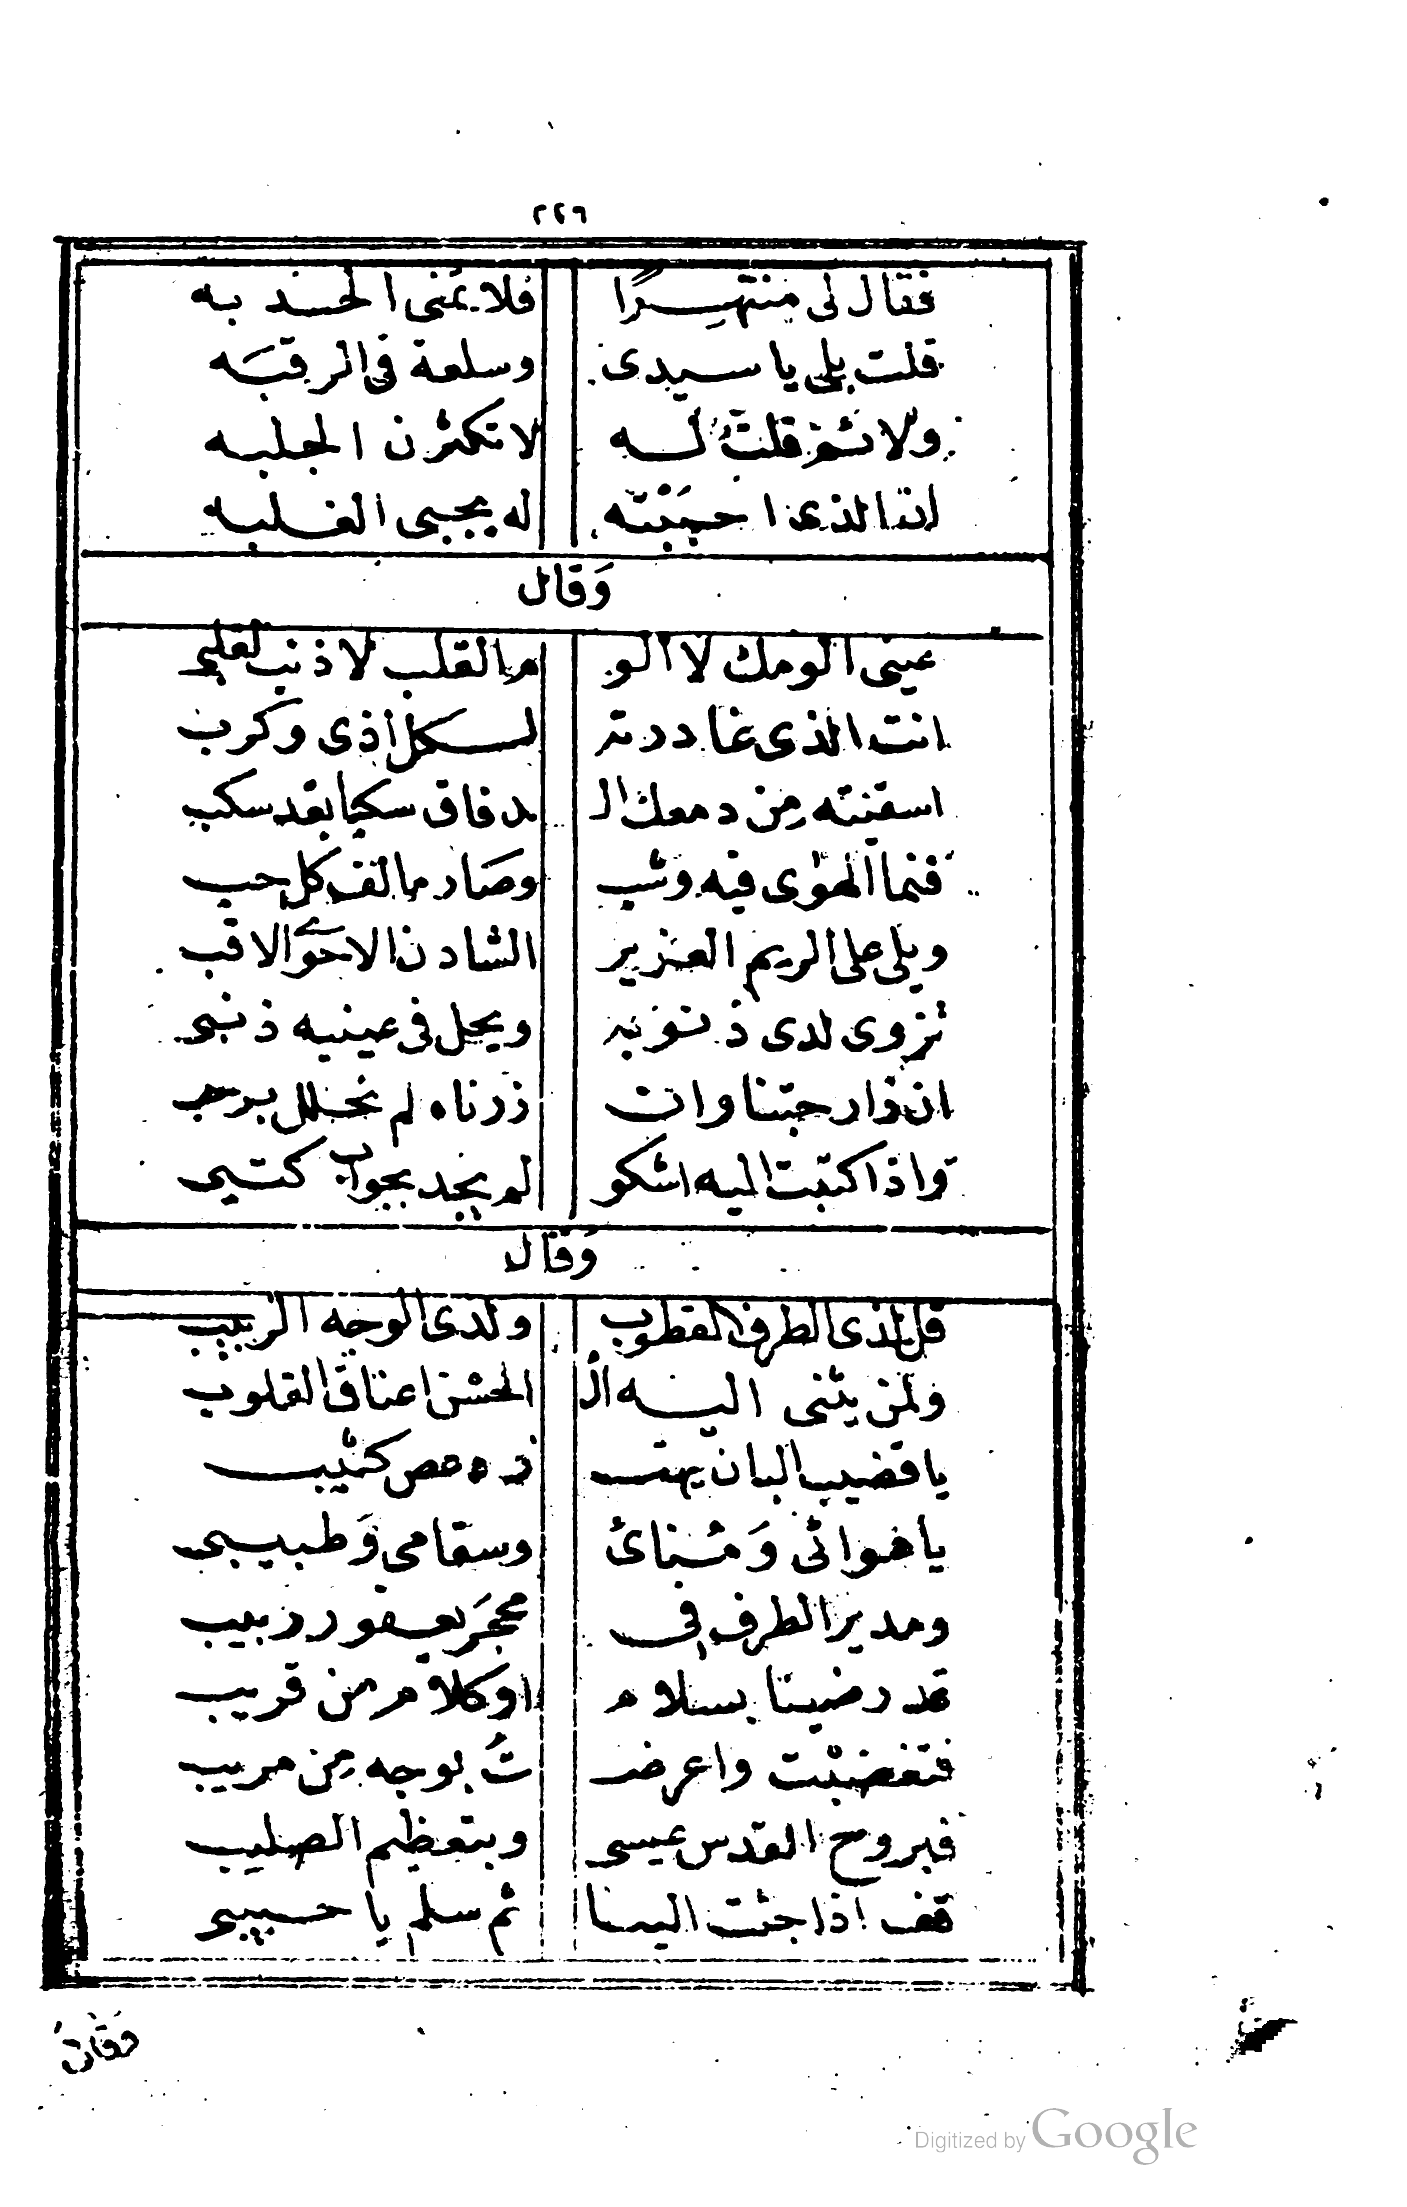 ٢٢٦
فقال لى منتهرًا فلا يمنى الحسد به
قلت بلى يا سيدى وسلعة فى الرقبه
ولا تثر قلت له لا تكثرن الجلبه
انت الذى احببته له يجبى الغلبه
وَقال
عينى الومك لا الو م القلب لا ذنب لقلبى
انت الذى غادرته لكل أذى وكرب
اسقيته من دمعك الـ ـدفاق سكبا بعد سكب
فنما الهوى فيه وشب وصار مالف كل حب
ويلى على الريم الغرير الشادن الاحوى الاقب
تزوى لدى ذنوبه ويحل فى عينيه ذنبى
ان زار جيتنا وان زرناه لم نحلل برحب
واذا كتبت اليه اشكو لم يجد بجواب كتبى
وَقال
قل لذى الطرف القطوب ولذى الوجه الربيب
ولمن يثنى اليه الـ الحسن اعناق القلوب
يا قضيب البان يهتـ ـز ه دعص كثيب
يا هوائى وَمُنائى وسقامى وَطبيبى
ومدير الطرف فى محجرَ يعفور ربيب
قد رضينا بسلام او كلام من قريب
فتغضبت واعرضـ ـتُ بوجه من مريب
فبروح القدس عيسى وبتعظيم الصليب
قف اذا جئت الينا ثم سلم يا حبيبى
وَقال
Digitized by Google